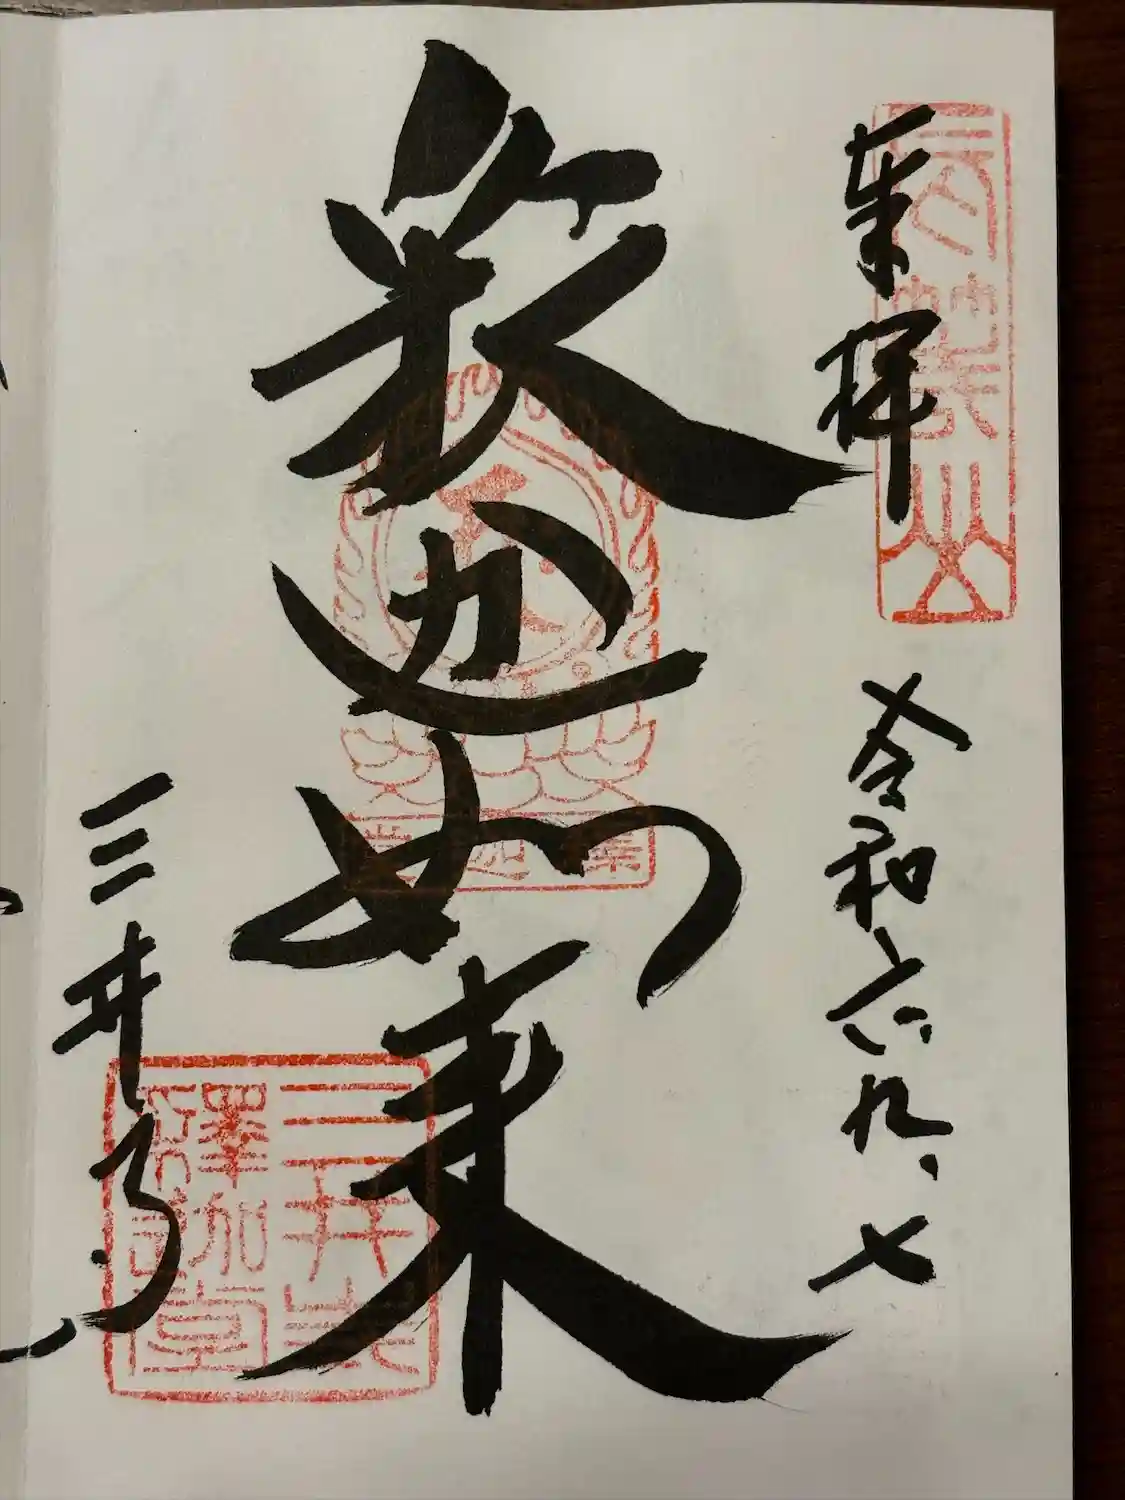 長等山
奉拝
令和六、九、七
釈迦如来
三井寺
三井寺
釋迦堂